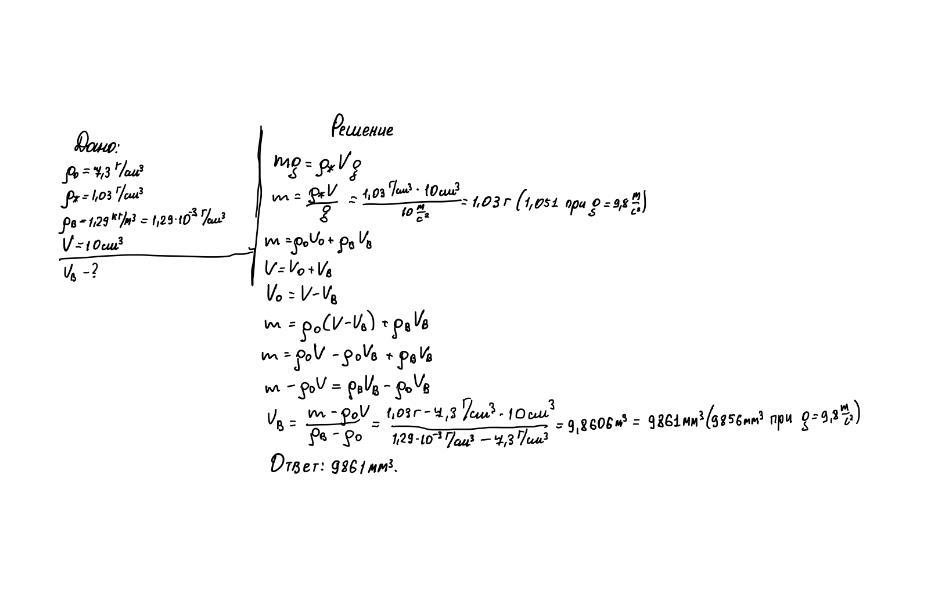 Дано:
ρ₀ = 7,3 г/см³
ρж = 1,03 г/см³
ρв = 1,29 кг/м³ = 1,29·10⁻³ г/см³
V = 10 см³
Vв - ?
Решение
mg = ρж V g
m = ρж V / g = 1,03 г/см³ · 10 см³ / 10 м/с² = 1,03 г (1,051 при g = 9,8 м/с²)
m = ρ₀V₀ + ρвVв
V = V₀ + Vв
V₀ = V - Vв
m = ρ₀(V - Vв) + ρвVв
m = ρ₀V - ρ₀Vв + ρвVв
m - ρ₀V = ρвVв - ρ₀Vв
Vв = m - ρ₀V / ρв - ρ₀ = 1,03 г - 7,3 г/см³ · 10 см³ / 1,29·10⁻³ г/см³ - 7,3 г/см³ = 9,8606 м³ = 9861 мм³ (9856 мм³ при g = 9,8 м/с²)
Ответ: 9861 мм³.